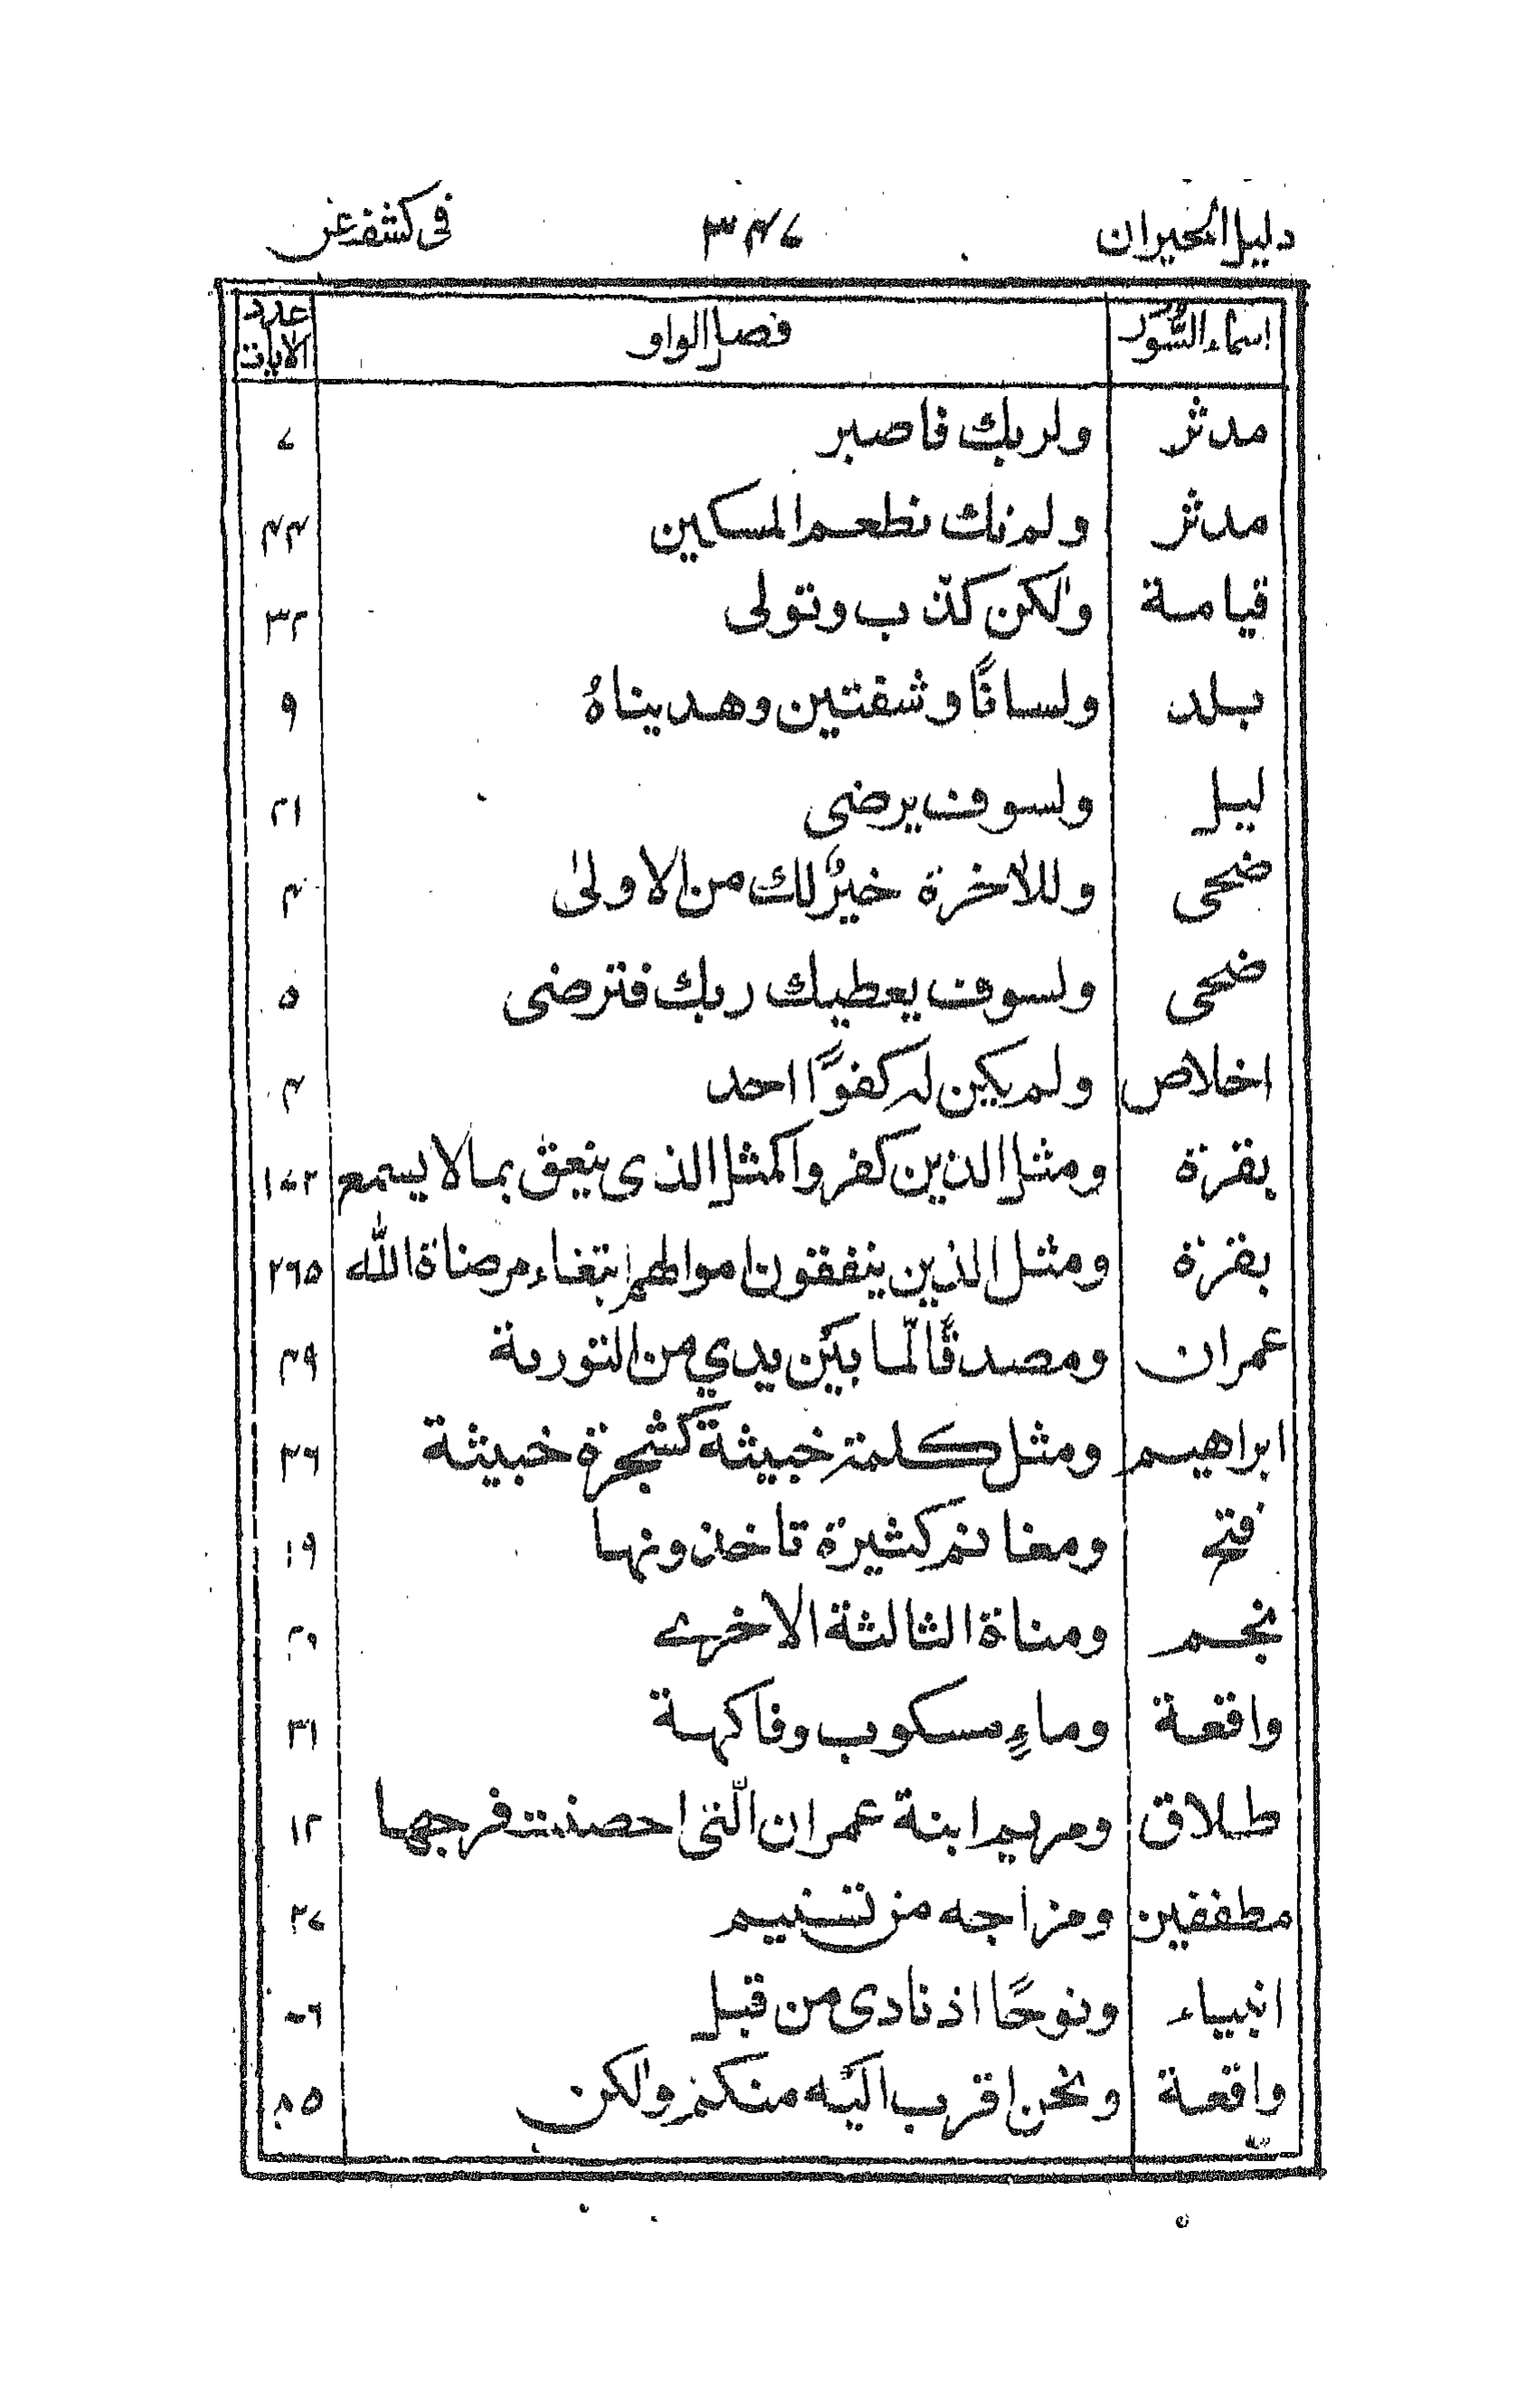 دليل الحيران ٣٤٧ فى كشف عن
اسماء السُّوَر فصل الواو عدد الايات
مدثر ولربك فاصبر ٧
مدثر ولم نك نطعم المسكين ٤٤
قيامة ولكن كذّب وتولى ٣٢
بلد ولسانًا وشفتين وهديناهُ ٩
ليل ولسوف يرضى ٢١
ضحى وللاخرة خيرٌ لك من الاولىٰ ٤
ضحى ولسوف يعطيك ربك فترضى ٥
اخلاص ولم يكين له كفوًا احد ٤
بقرة ومثل الذين كفروا كمثل الذى ينعق بما لا يسمع ١٧٢
بقرة ومثل الذين ينفقون اموالهم ابتغاء مرضاة الله ٢٦٥
عمران ومصدقًا لّما بيَن يدي من التورىة ٤٩
ابراهيم ومثل كلمة خبيثة كشجرة خبيثة ٢٦
فتح ومغانم كثيرة تاخذونها ١٩
نجم ومناة الثالثة الاخرى ٢٠
واقعة وماءٍ مسكوب وفاكهة ٣١
طلاق ومريم ابنة عمران الّتى احصنت فرجها ١٢
مطففين ومزاجه من تسنيم ٢٧
انبياء ونوحًا اذ نادى من قبل ٧٦
واقعة ونحن اقرب اليَه منكم ولكن ٨٥